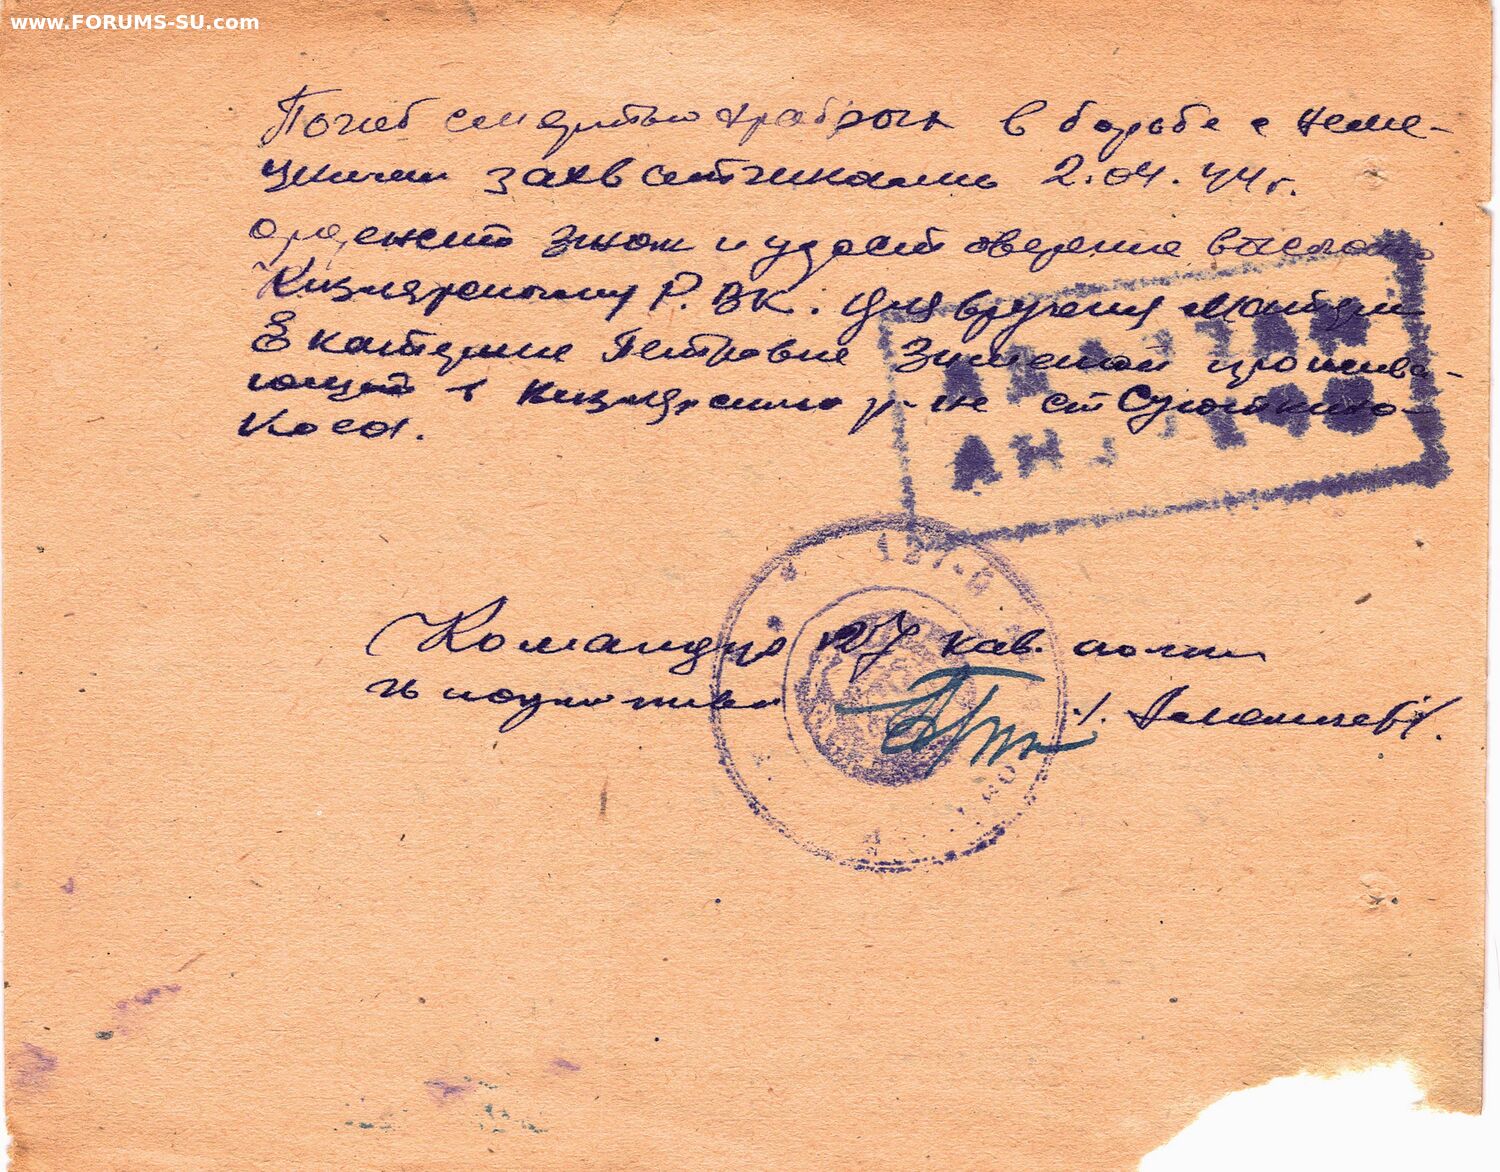 www.FORUMS-SU.com
Погиб смертью храбрых в борьбе с неме-
цкими захватчиками 2.04.44г.
орденский знак и удостоверение выслать
Кизлярскому Р.В.К. для вручения матери
Екатерине Петровне прожива-
ющей в Кизлярском р-не ст
Коса.
Командир 127 кав. полка
гв подполковник
127-й